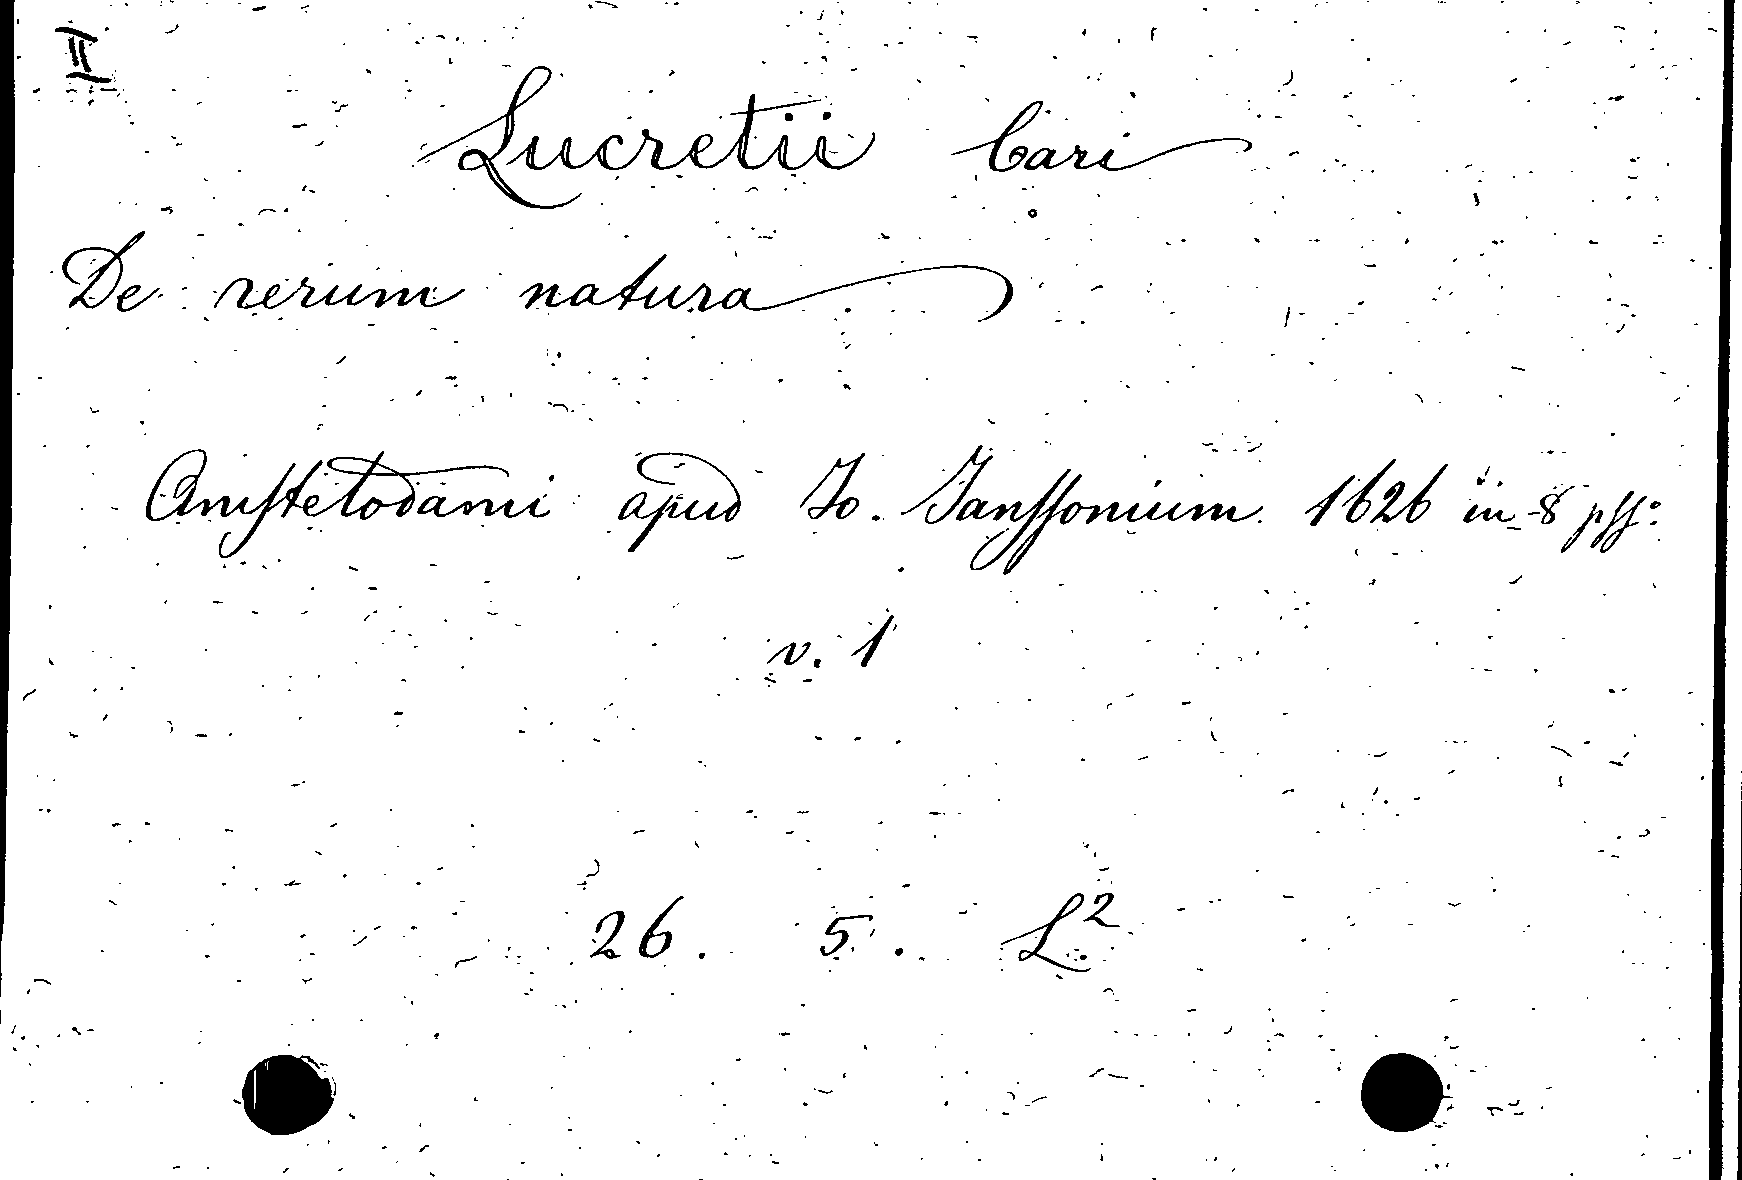 II
Lucretii Cari
De rerum natura
Amstelodami apud Jo. Janssonium 1626 in 8 pss:
v. 1
26. 5. L²